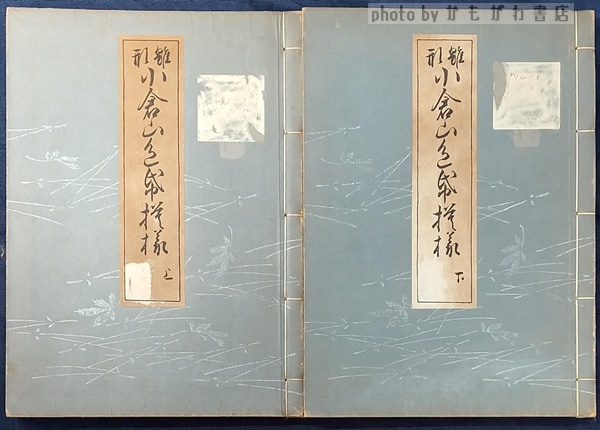 photo by かもがわ書店
雛形 小倉山色帋模様 上
雛形 小倉山色帋模様 下